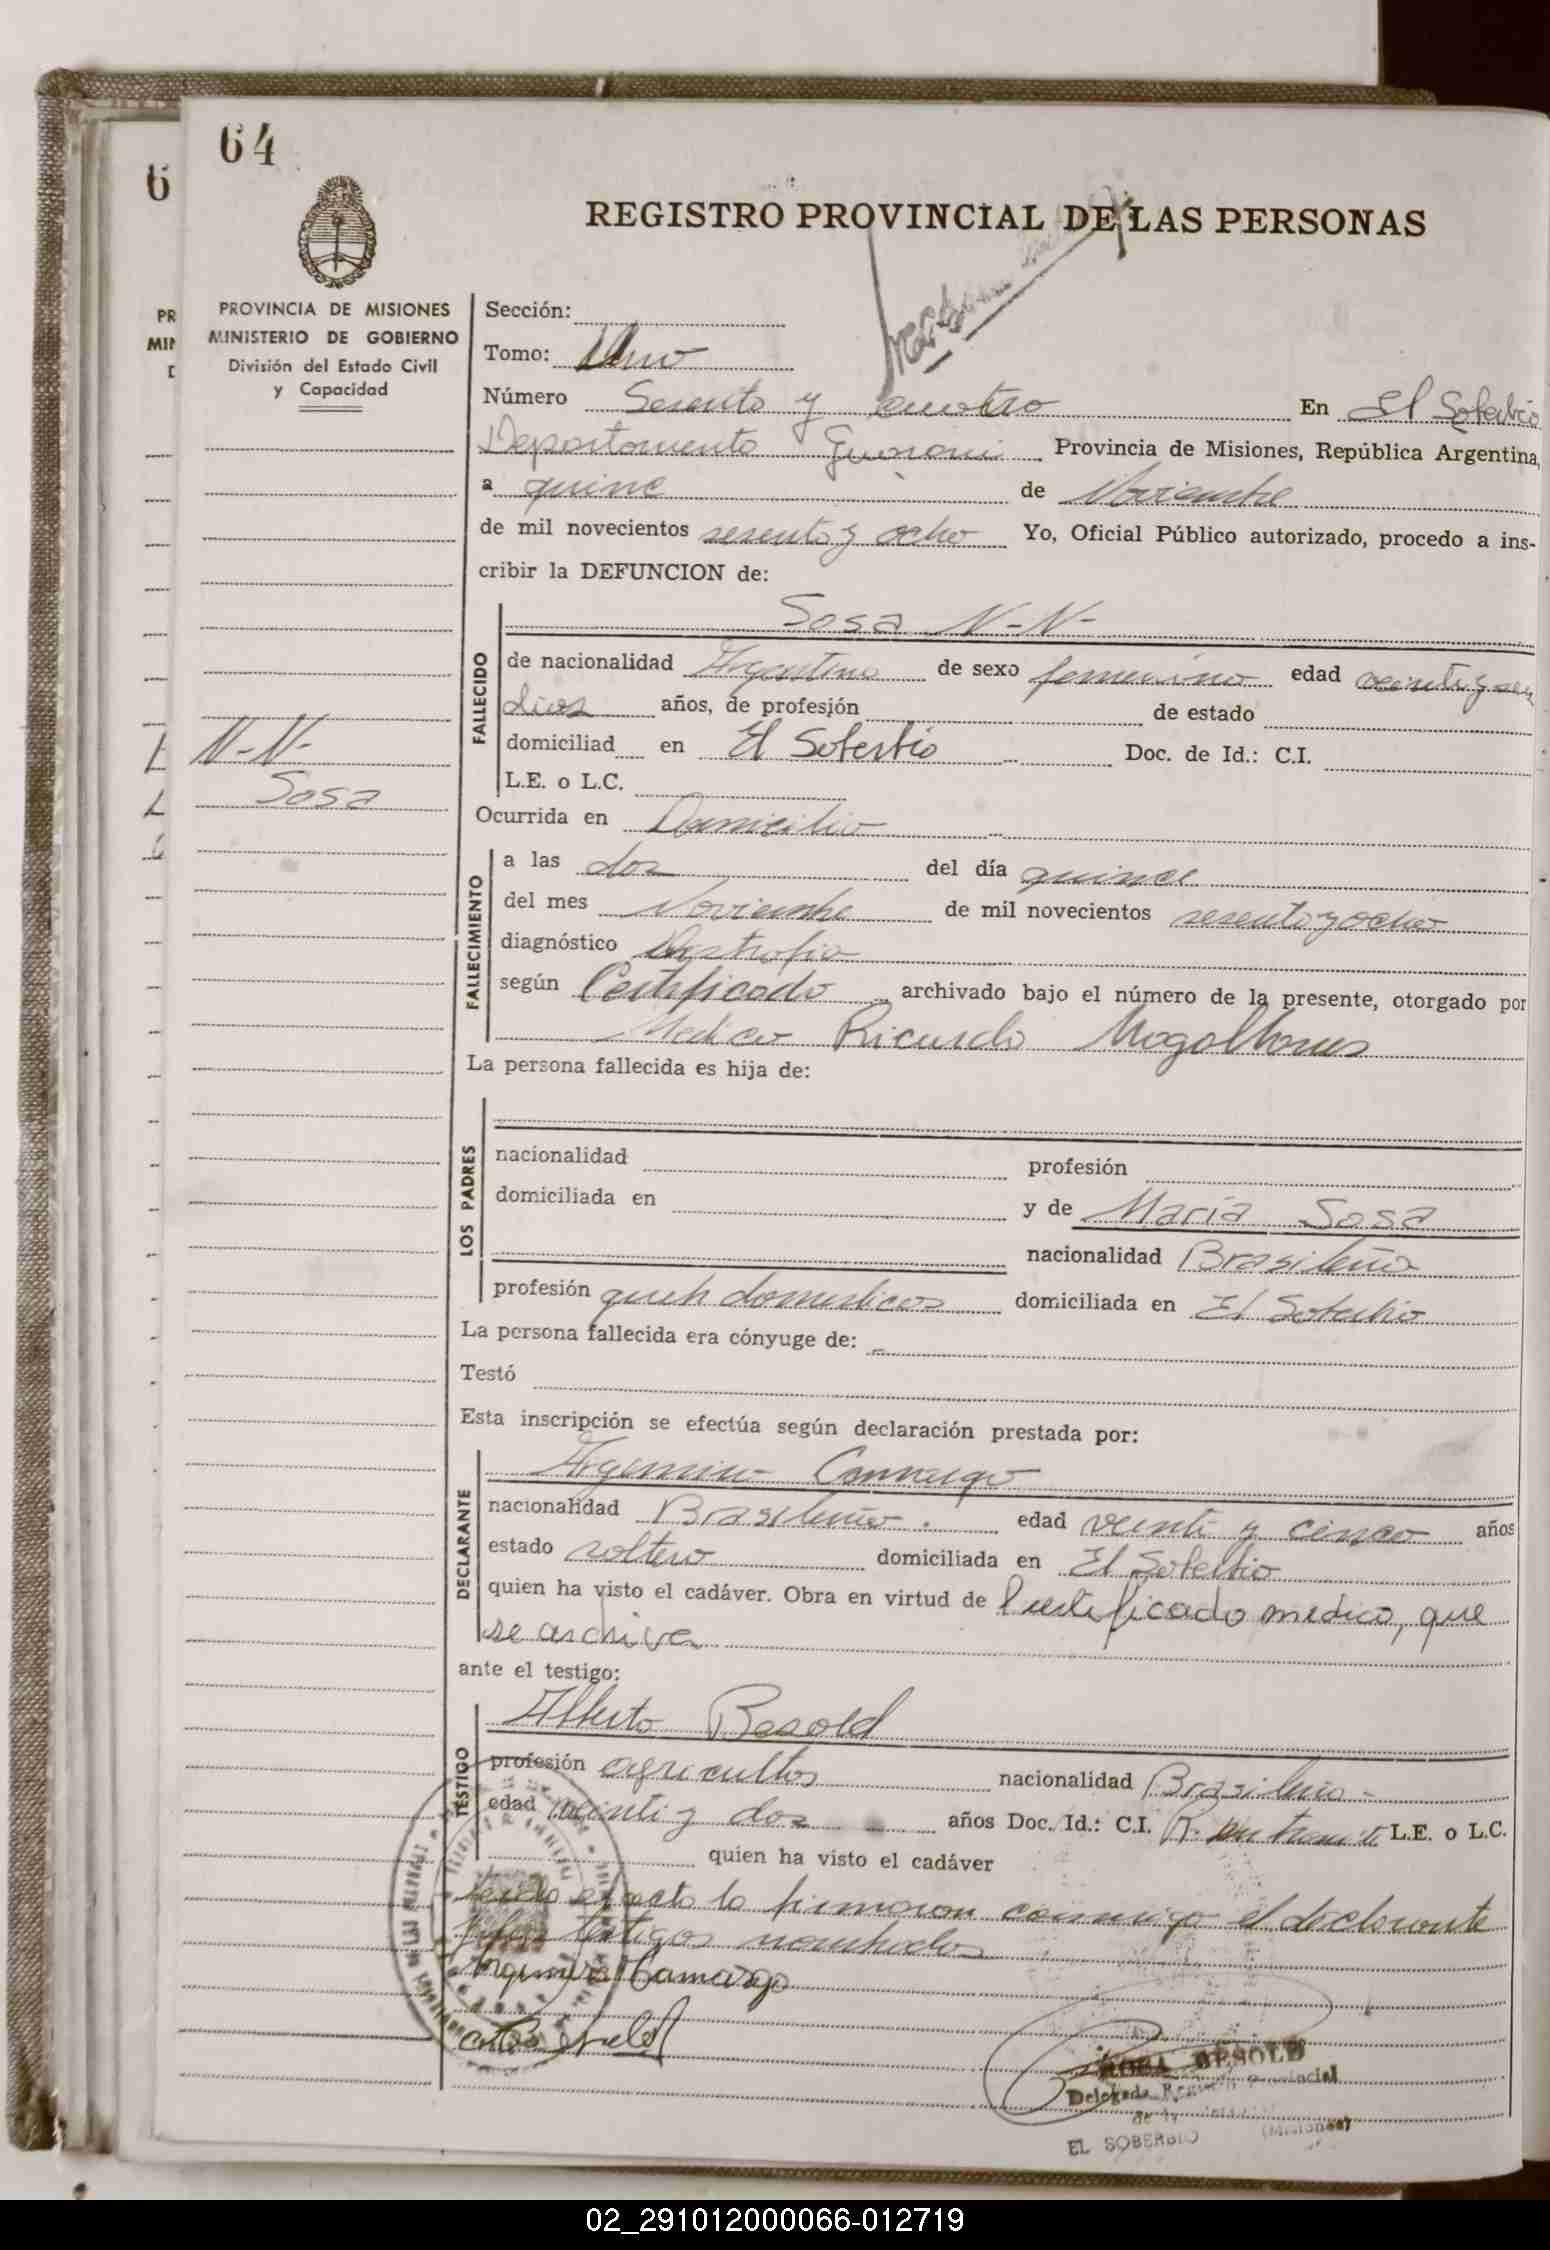 64
6
REGISTRO PROVINCIAL DE LAS PERSONAS
PROVINCIA DE MISIONES
MINISTERIO DE GOBIERNO
División del Estado Civil
y Capacidad
Sección:
Tomo: Uno
Número Sesenta y cuatro En El Soberbio
Departamento Guarani Provincia de Misiones, República Argentina,
a quince de Noviembre
de mil novecientos sesenta y ocho Yo, Oficial Público autorizado, procedo a ins-
cribir la DEFUNCION de:
Sosa N-N-
FALLECIDO
de nacionalidad Argentina de sexo femenino edad veinti y seis
dias años, de profesión de estado
domiciliad en El Soberbio Doc. de Id.: C.I.
L.E. o L.C.
N-N-
Sosa
Ocurrida en Domicilio
FALLECIMIENTO
a las dos del día quince
del mes Noviembre de mil novecientos sesenta y ocho
diagnóstico Distrofia
según Certificado archivado bajo el número de la presente, otorgado por
Medico Ricardo Mogalhoues
La persona fallecida es hija de:
LOS PADRES
nacionalidad profesión
domiciliada en y de Maria Sosa
nacionalidad Brasileña
profesión queh domesticos domiciliada en El Soberbio
La persona fallecida era cónyuge de:
Testó
Esta inscripción se efectúa según declaración prestada por:
DECLARANTE
Argemiro Camargo
nacionalidad Brasileño. edad veinti y cinco años
estado soltero domiciliada en El Soberbio
quien ha visto el cadáver. Obra en virtud de Certificado medico, que
se archiva
ante el testigo:
TESTIGO
Alberto Besold
profesión agricultor nacionalidad Brasileño-
edad veinti y dos años Doc. Id.: C.I. R. en tramite L.E. o L.C.
quien ha visto el cadáver
leida el acta la firmaron conmigo el declarante
y los testigos nombrados
Argemiro Camargo
ROSA BESOLD
Delegada Registro Provincial
de las
EL SOBERBIO (Misiones)
02_291012000066-012719